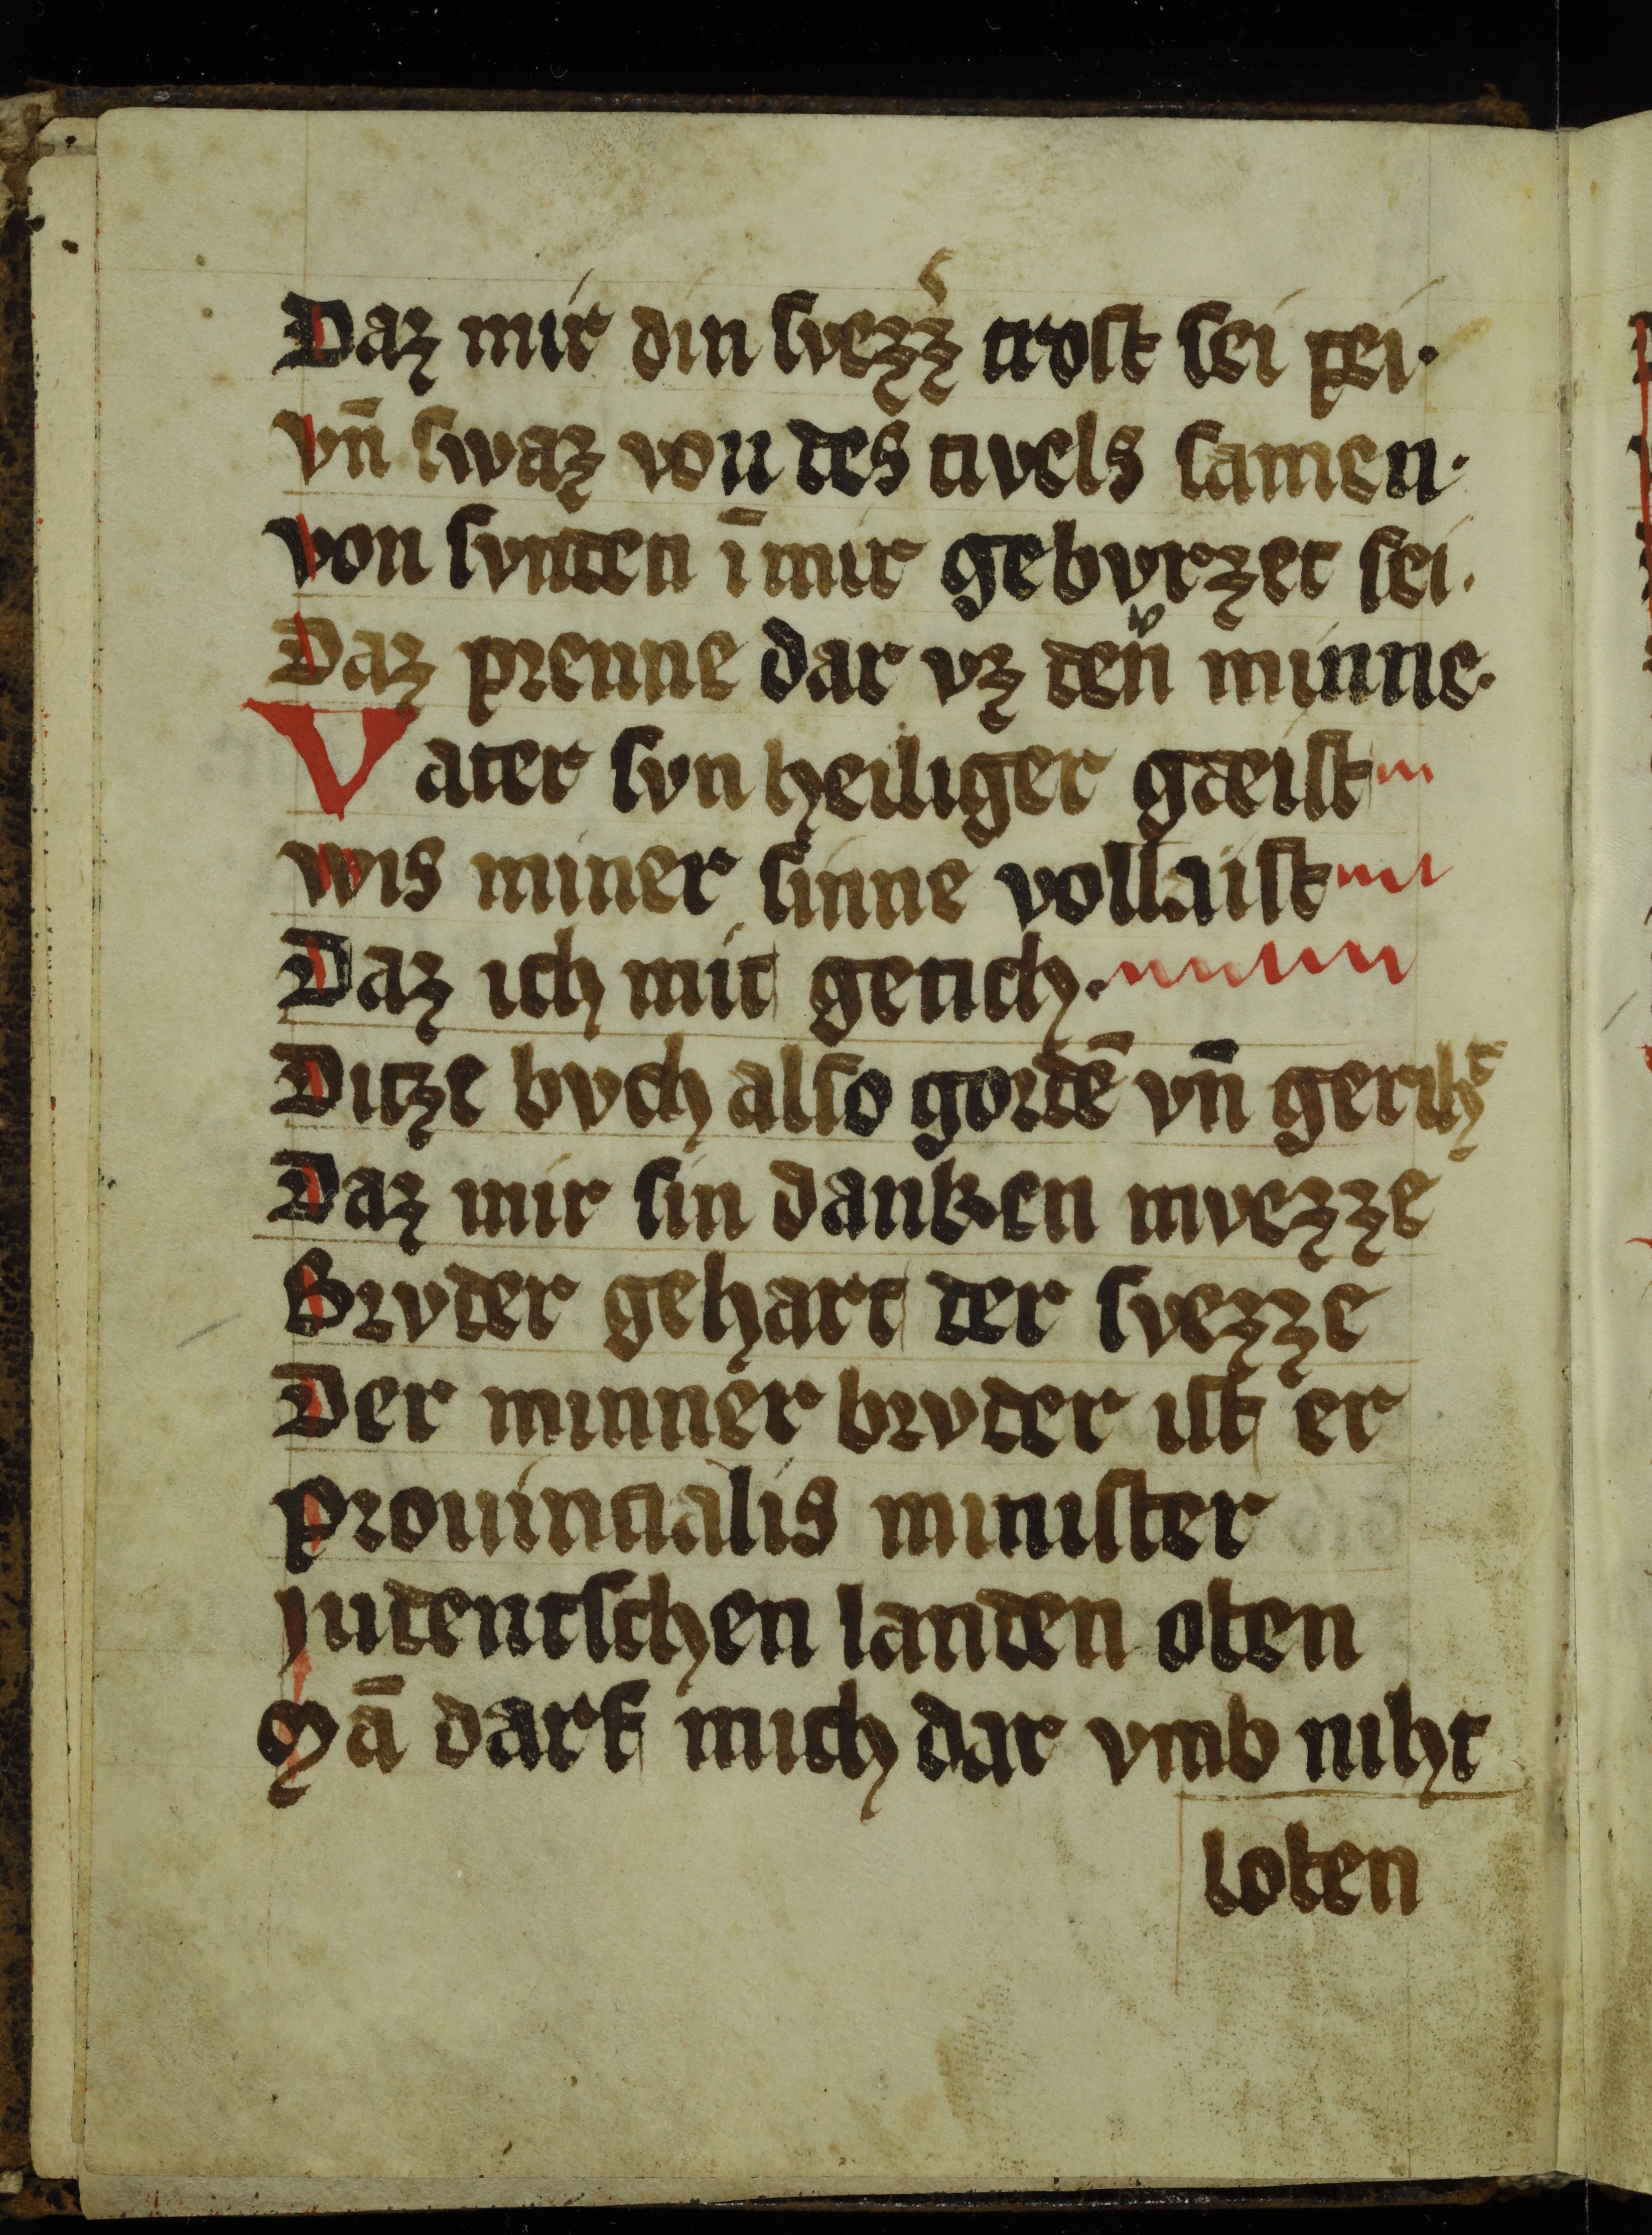 Daz mir din svezz᾽ trost sei pei·
vn̄ swaz von des tivels samen·
von svnten ī mir gebvrzet sei·
Daz prenne dar vz deň minne·
Vater svn heiliger gæist
wis miner sinne vollaist
Daz ich mit getich·
Ditze bvch also gordē vn̄ geriht᾽
Daz mir sin danken mvezze
Brvder gehart der svezze
Der minner brvder ist er
Prouincialis minister
Jn tentschen landen oben
Mā darf mich dar vmb niht
loben